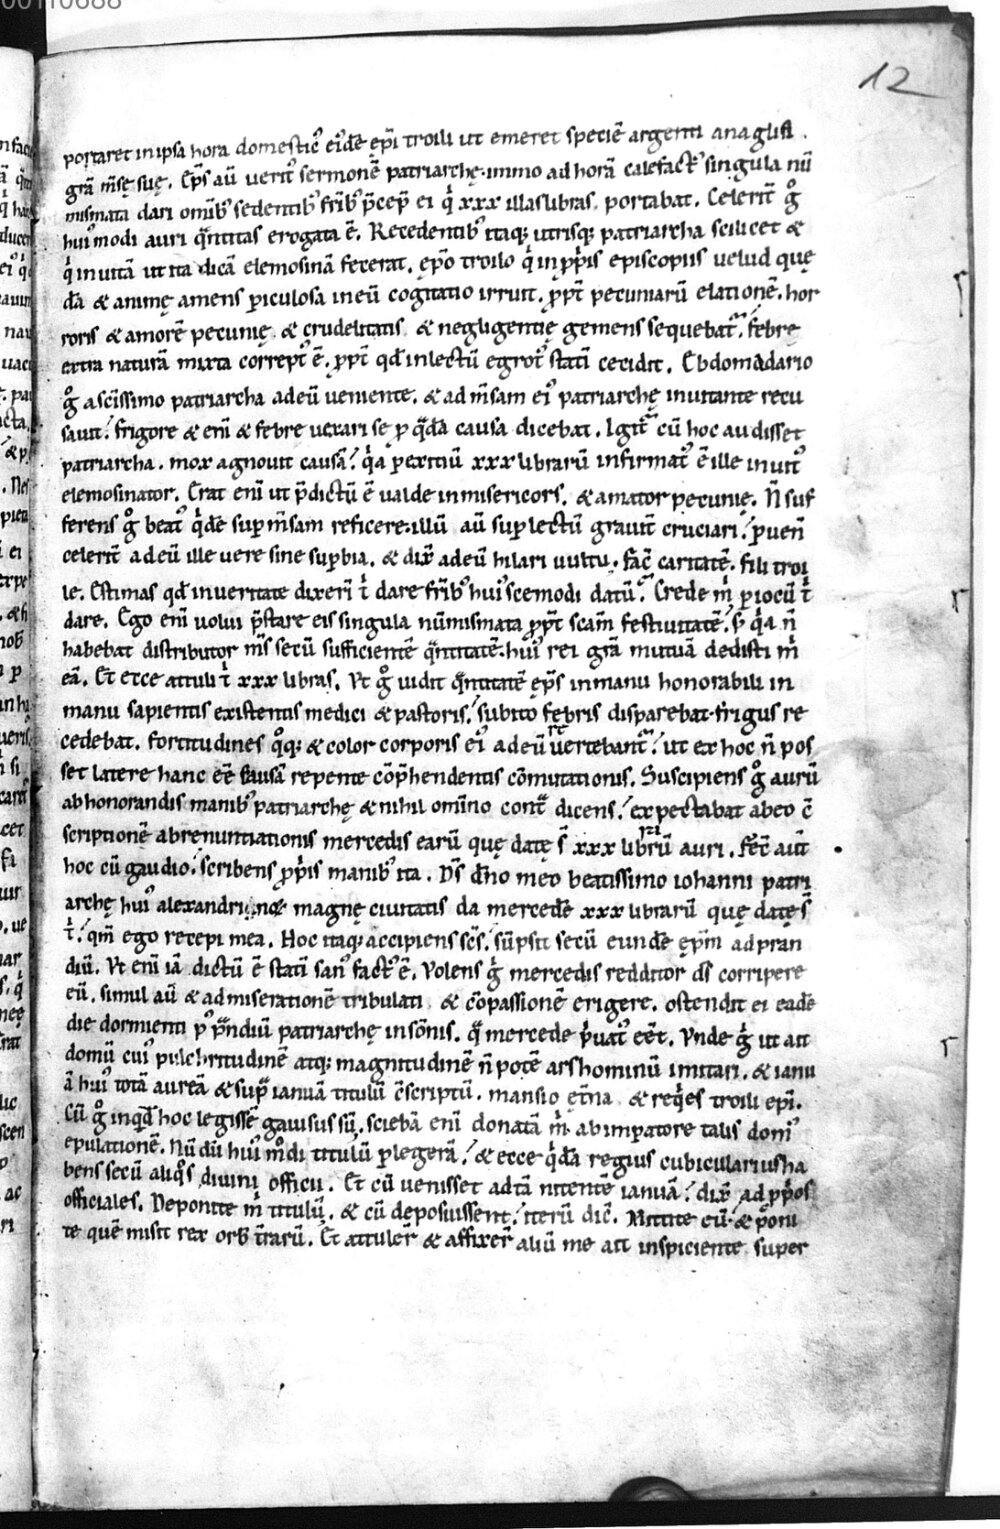 12
portaret in ipsa hora domesticꝰ eiꝰdē ęp̄i troili ut emeret speciē argenti anaglifi.
grā m̄sę suę. Ep̄s aū uerit᷒ sermonē patriarchę. immo ad horā calefactꝰ singula nū
mismata dari omībꝰ sedentibꝰ fr̄ibꝰ p̄cep̄ ei q̇ xxx illas libras portabat. Celerit̄ g̊
huiꝰmodi auri q̄ntitas erogata ē. Recedentibꝰ itaq; utrisq; patriarcha scilicet &
q̇ inuitā ut ita dicā elemosinā fecerat. ęp̄o troilo q̇ in ꝓp̄is episcopiis uelud quę
dā & animę amens ꝑiculosa in eū cogitatio irruit. ꝓpt̄ pecuniarū elationē. hor
roris & amorē pecunię & crudelitatis & negligentię gemens sequebat᷒. febre
extra naturā mixta correptꝰ ē. ꝓpt̄ qd̄ in lectū egrotꝰ statī cecidit. Ebdomadario
g̊ a sc̄issimo patriarcha ad eū ueniente. & ad m̄sam eiꝰ patriarchę inuitante recu
sauit. frigore & enī & febre uexari se ꝑ q̄dā causa dicebat. Igit᷒ cū hoc audisset
patriarcha. mox agnouit causā. q̇a ꝑ exitiū xxx librarū infirmatꝰ ē ille inuitꝰ
elemosinator. Erat enī ut p̄dictū ē ualde inmisericors. & amator pecunię. N̄ suf
ferens g̊ beatꝰ q̇dē suꝑ m̄sam reficere. illū aū suꝑ lectū grauit̄ cruciari. ꝑuen̄
celerit̄ ad eū ille uere sine suꝑbia. & dix̄ ad eū hilari uultu. fac̄ caritatē. fili troi
le. Estimas qd̄ in ueritate dixerī t̄ dare fr̄ibꝰ huiꝰscemodi datū. Crede m̄ ꝑ iocū t̄
dare. Ego enī uolui p̄stare eis singula nūmismata ꝓpt̄ scām festiuitatē. s; q̇a n̄
habebat distributor m̄s secū sufficientē q̄ntitatē. huiꝰ rei grā mutuā dedisti m̄
eā. Et ecce attuli t̄ xxx libras. Vt g̊ uidit q̄ntitatē ęp̄s in manu honorabili in
manu sapientis existentis medici & pastoris. subito febris disparebat. frigus re
cedebat. fortitudines q̊q; & color corporis eiꝰ ad eū reuertebant᷒. ut ex hoc n̄ pos
set latere hanc eē causā repente cōp̄hendentis cōmutationis. Suscipiens g̊ aurū
ab honorandis manibꝰ patriarchę & nihil omīno contᷓ dicens. expectabat ab eo c̄
scriptionē abrenuntiationis mercedis earū quę datę s̄ xxx librarū auri. fec̄ aūt
hoc cū gaudio. scribens ꝓp̄is manibꝰ ita. Ds̄ dn̄o meo beatissimo iohanni patri
archę huiꝰ alexandrinę magnę ciuitatis da mercedē xxx librarū quę datę s̄
t̄. qm̄ ego recepi mea. Hoc itaq; accipiens sc̄s. sūpsit secū eundē ęp̄m ad pran
diū. Vt enī iā dictū ē statī sanꝰ factꝰ ē. Volens g̊ mercedis redditor ds̄ corripere
eū. simul aū & ad miserationē tribulati & cōpassionē erigere. ostendit ei eadē
die dormienti pꝰ p̄ndiū patriarchę in sōnis. qᷓ mercede p̄uatꝰ eēt. Vnde g̊ ut ait
domū cuiꝰ pulchritudinē atq; magnitudinē n̄ potē ars hominū imitari. & ianu
ā huiꝰ totā aureā & supᷓ ianuā titulū c̄scriptū. mansio et̄na & req̇es troili ep̄i.
Cū g̊ inqd̄ hoc legissē gauisus sū. sciebā enī donatā m̄ ab imperatore talis domꝰ
epulationē. Nū dū huiꝰ m̊di titulū ꝑlegerā. & ecce q̇dā regius cubicularius ha
bens secū aliq̊s diuini officii. Et cū uenisset ad tā nitentē ianuā. dix̄ ad ꝓp̄os
officiales. Deponite m̄ titulū. & cū deposuissent. iterū dic̄. Mittite eū. & poni
te quē misit rex orb t̄rarū. Et attuler̄ & affixer̄ aliū me ait inspiciente super